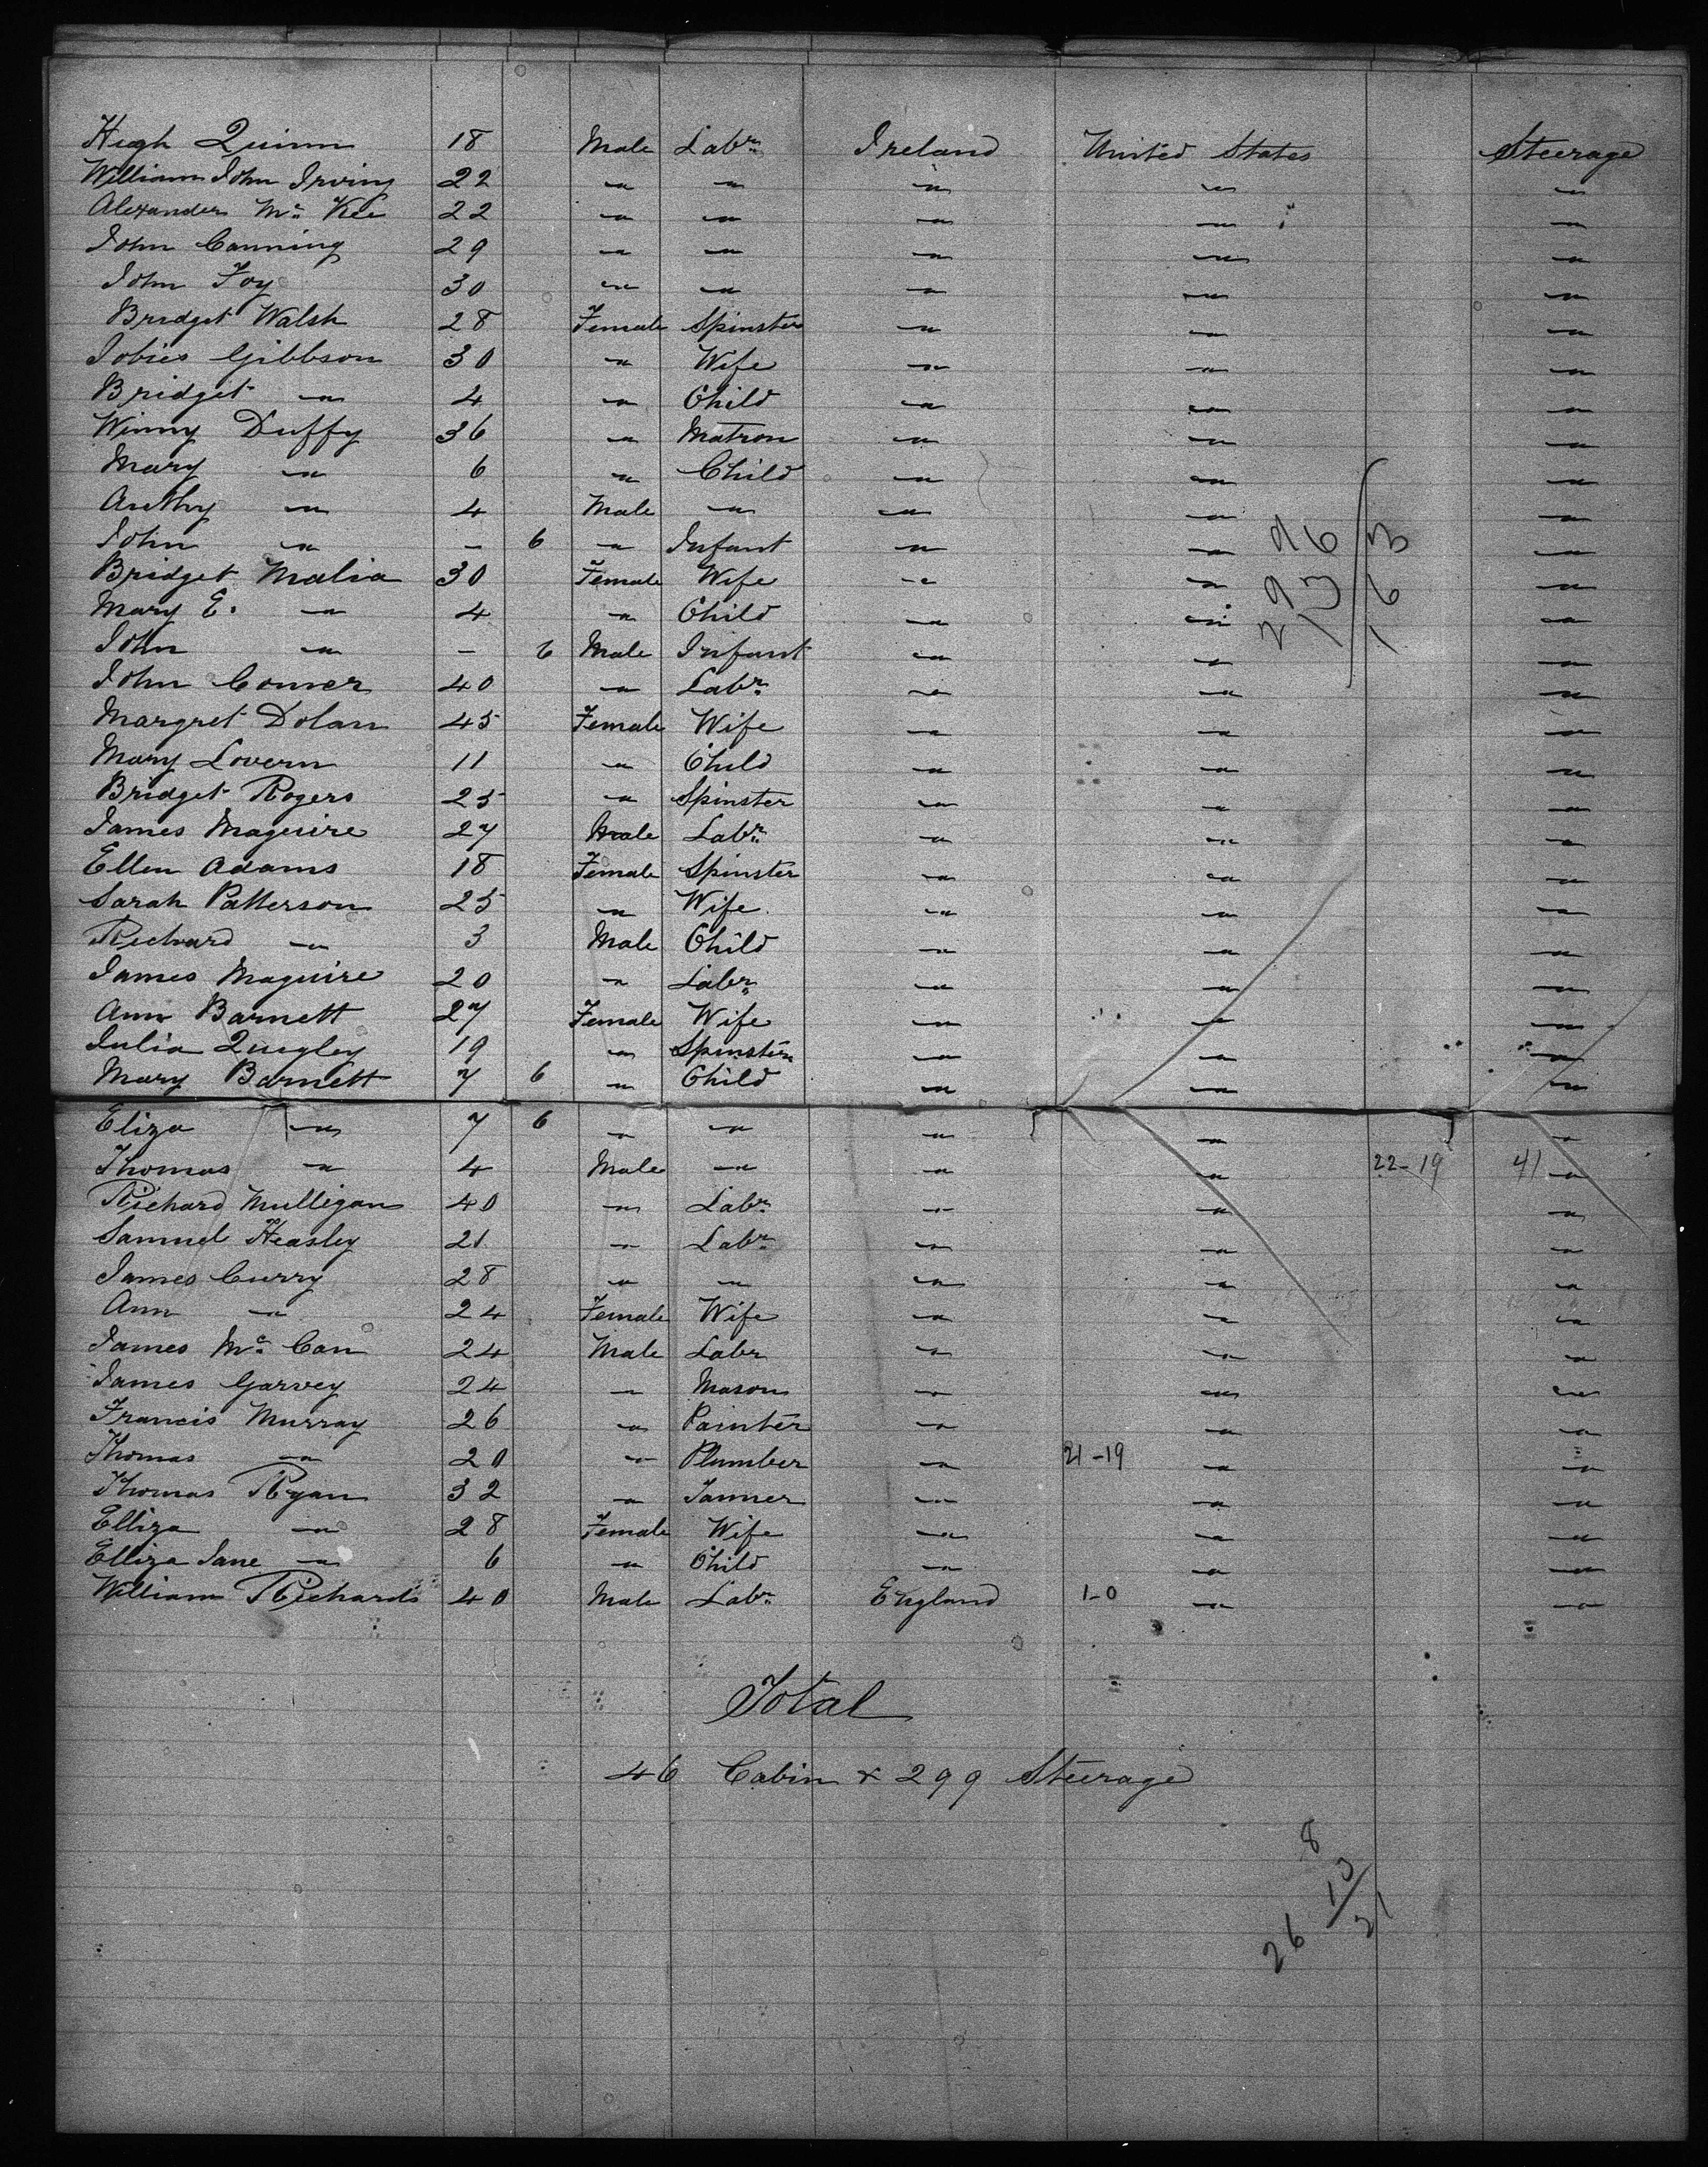 Hugh Quinn 18 Male Labr Ireland United States Steerage
William John Irving 22 " " " " "
Alexander Mc Kee 22 " " " " "
John Canning 29 " " " " "
John Foy 30 " " " " "
Bridget Walsh 28 Female Spinster " " "
Gibbson 30 " Wife " " "
Bridget " 4 " Child " " "
Winny Duffy 36 " Matron " " "
Mary " 6 " Child " " "
Anthy " 4 Male " " " "
John " - 6 " Infant " " "
Bridget Malia 30 Female Wife " " "
Mary E. " 4 " Child " " "
John " - 6 Male Infant " " "
John Comer 40 " Labr " " "
Margret Dolan 45 Female Wife " " "
Mary Lovern 11 " Child " " "
Bridget Rogers 25 " Spinster " " "
James Maguire 27 Male Labr " " "
Ellen Adams 18 Female Spinster " " "
Sarah Patterson 25 " Wife " " "
Richard " 3 Male Child " " "
James Maguire 20 " Labr " " "
Ann Barnett 27 Female Wife " " "
Julia Quigley 19 " Spinster " " "
Mary Barnett 7 6 " Child " " "
Eliza " 7 6 " " " " "
Thomas " 4 Male " " " 22-19 41 "
Richard Mulligan 40 " Labr " " "
Samuel Heasley 21 " Labr " " "
James Curry 28 " " " " "
Ann " 24 Female Wife " " "
James Mc Can 24 Male Labr " " "
James Garvey 24 " Mason " " "
Francis Murray 26 " Painter " " "
Thomas " 20 " Plumber " 21-19 " "
Thomas Ryan 32 " Tanner " " "
Elliza " 28 Female Wife " " "
Elliza Jane " 6 " Child " " "
William Richards 40 Male Labr England 1-0 " "
Total
46 Cabin & 299 Steerage
8
13
26 21